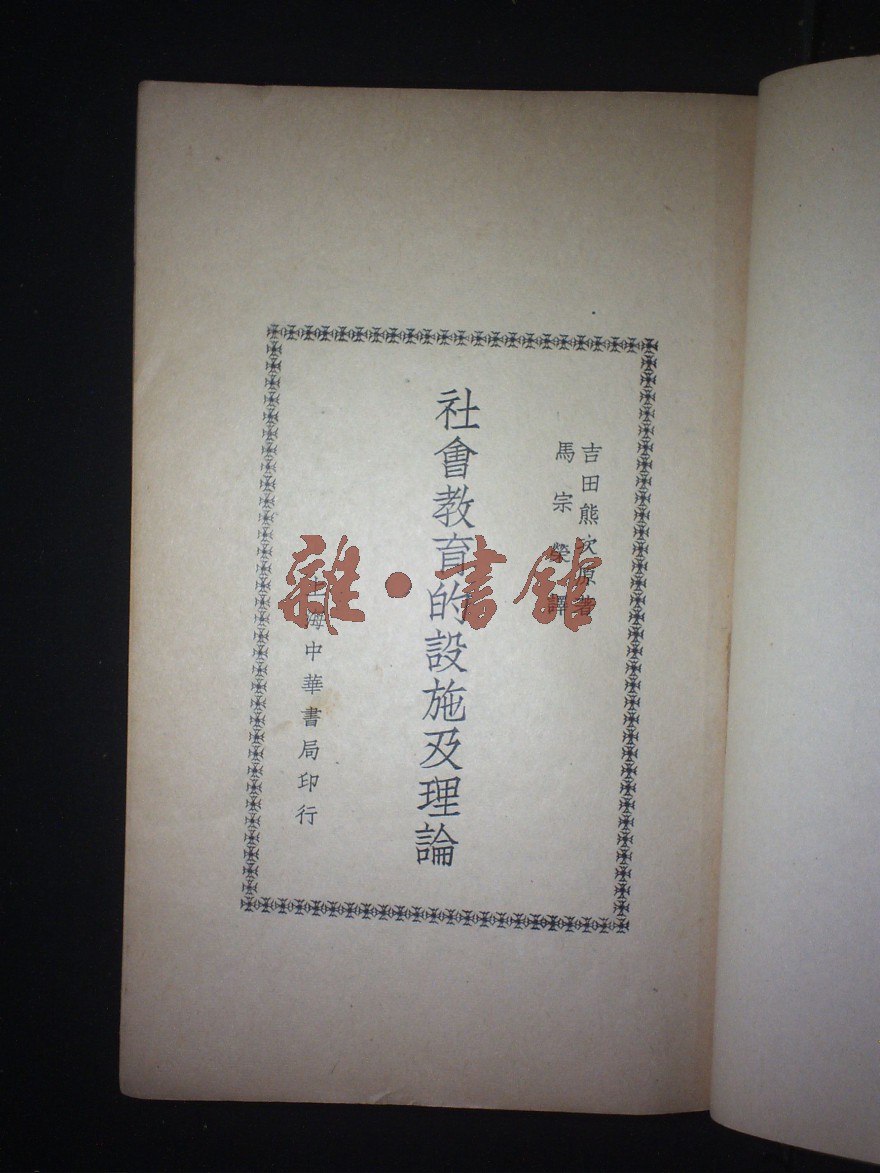 吉田熊次原著
馬宗榮譯
社會教育的設施及理論
上海中華書局印行
雜·書館